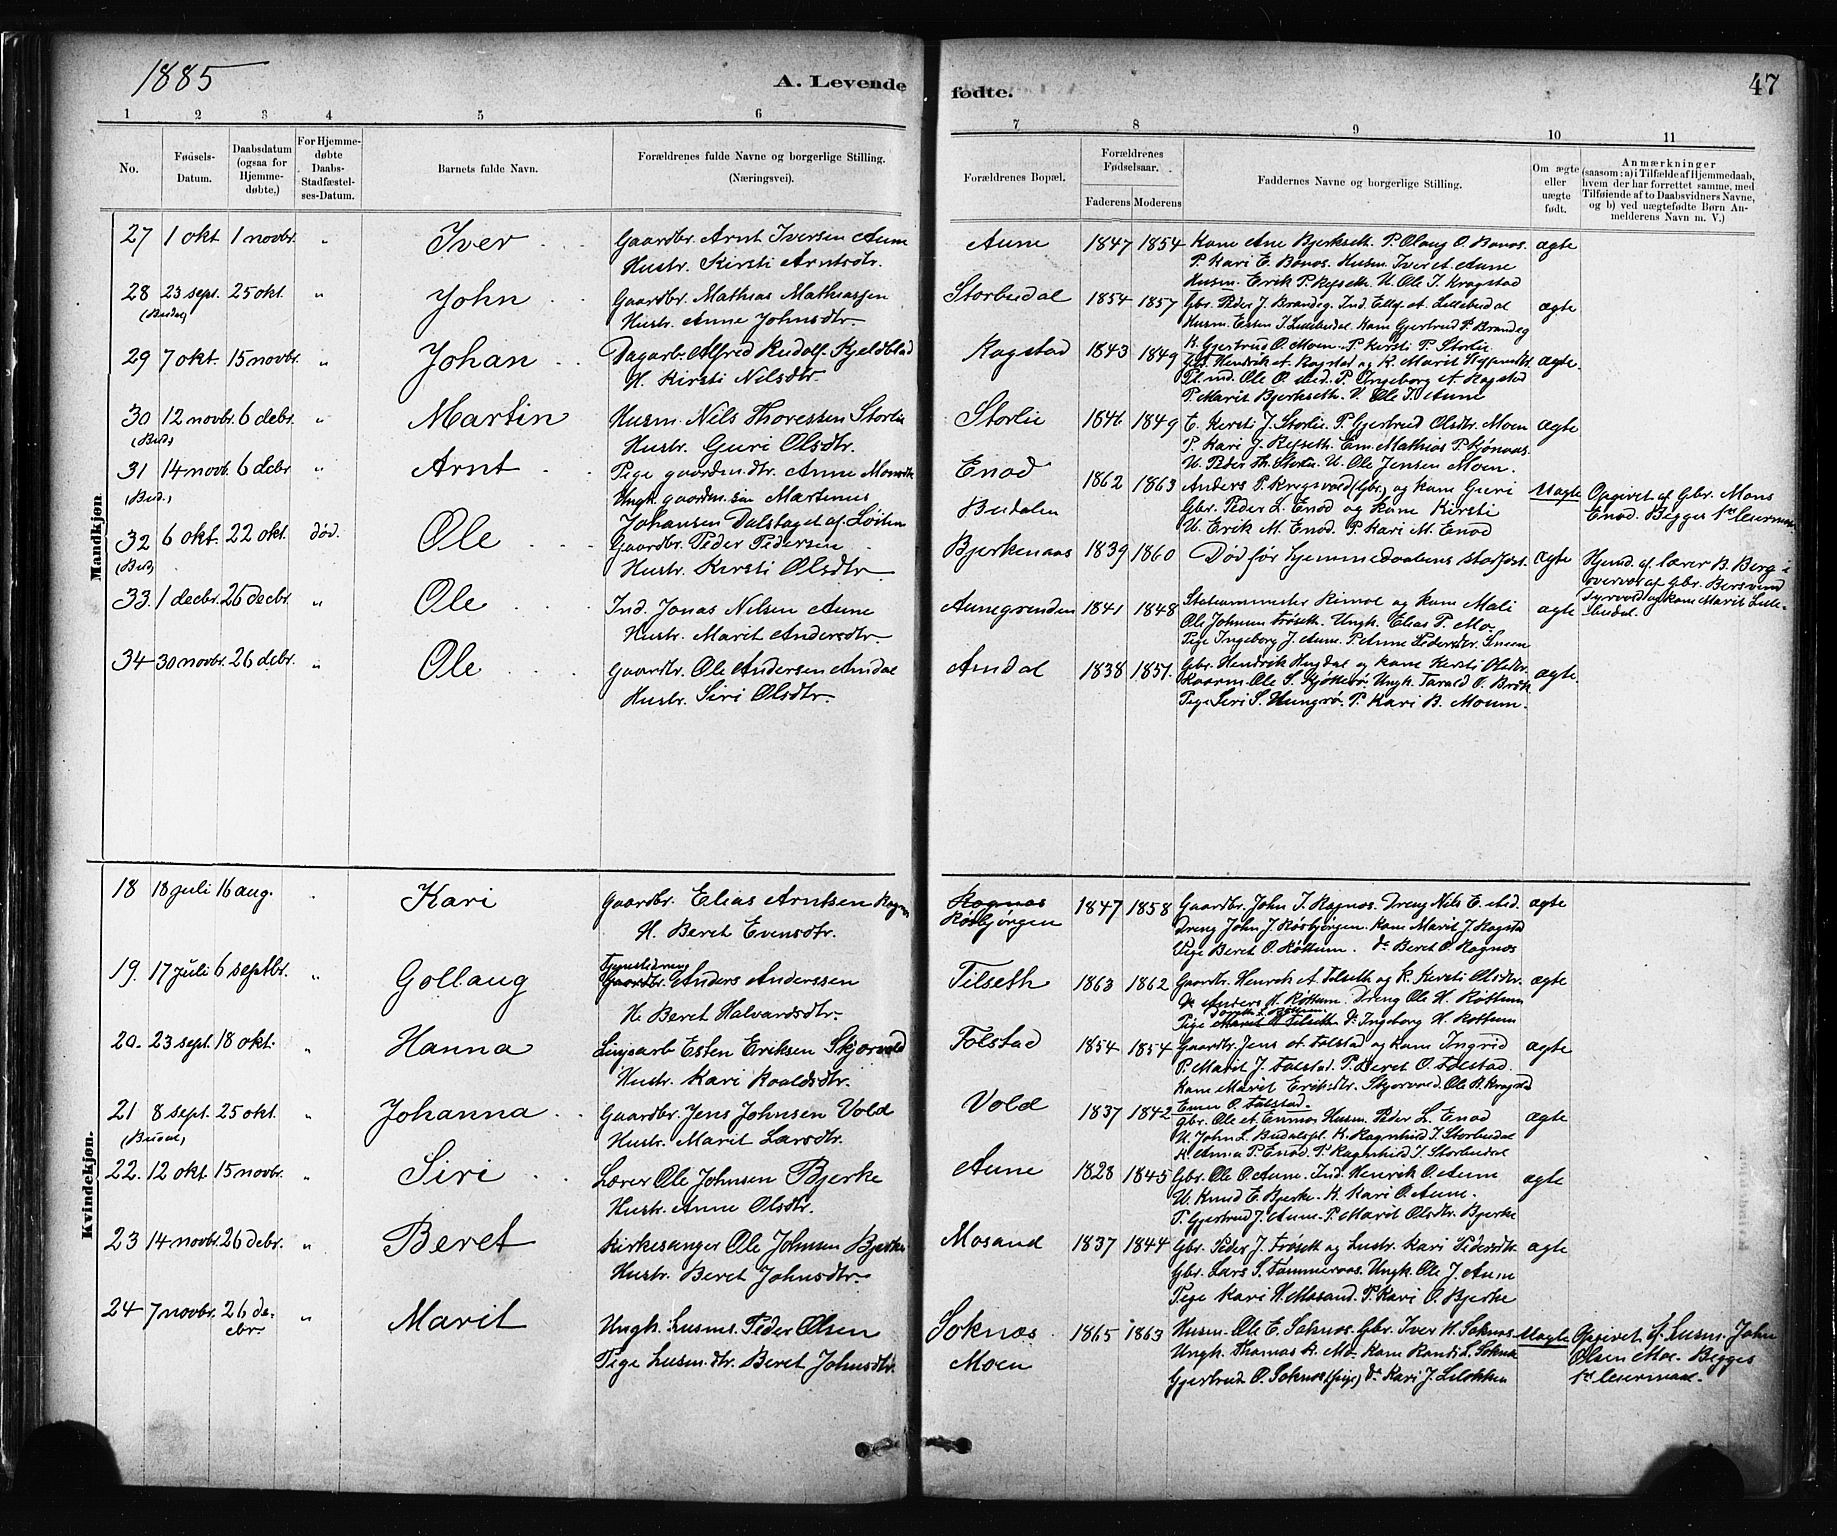 1885
A. Levende fødte.
47
1 2 3 4 5 6 7 8 9 10 11
No.
Fødsels-Datum.
Daabsdatum (ogsaa for Hjemmedøbte.)
For Hjemmedøbte Daabs-Stadfæstelses-Datum.
Barnets fulde Navn.
Forældrenes fulde Navne og borgerlige Stilling. (Næringsvei).
Forældrenes Bopæl.
Forældrenes Fødselsaar.
Faderens Moderens
Faddernes Navne og borgerlige Stilling.
Om ægte eller uægte født.
Anmærkninger (saasom: a) i Tilfælde af Hjemmedaab, hvem der har forrettet samme, med Tilføiende af to Daabsvidners Navne, og b) ved uægtefødte Børn Anmelderens Navn m. V.)
Mandkjøn.
27 1 okt 1 novbr. " Iver Gaardbr. Arnt Iversen Aune Aune 1847 1854 Kone Ane Bjerkseth. P. Olaug O. Bonos. ægte
Hustr. Kirsti Arntsdtr. P. Kari E. Bonos. Husm. Iver et. Aune
Husm. Erik P. Refseth. U. Ole J. Kragstad
28 23 sept. 25 okt. " John Gaardbr. Mathias Mathiassen Storbudal 1854 1857 Gbr. Peder J. Brandeg. Ind. Ellef et. Lillebudal ægte
(Budal) Hustr. Anne Johnsdtr. Husm. Essen J. Lillebudal. Kone Gjertrud P. Brandeg
29 7 okt. 15 novbr. " Johan Dagarb. Alfred Rudolf Kjeldblad Ragstad 1843 1849 K. Gjertrud O. Moen. P. Kersti P. Storlie ægte.
H. Kirsti Nilsdtr. Gbr. Hendrik et. Ragstad og K. Marit
Ole O. sted. P. Ingeborg et. Ragstad
P. Marit Bjerkseth. U. Ole J. Aune
30 12 novbr. 6 debr. " Martin Husm. Nils Thoressen Storlie Storlie 1846 1849 E. Kersti J. Storlie. P. Gjertrud Olsdtr. Moen ægte
(Bud.) Hustr. Guri Olsdtr. P. Kari J. Refseth. Em. Mathias P. Kjønaas
U. Peder Th. Storlie. U. Ole Jensen Moen.
31 14 novb. 6 debr " Arnt Pige gaardm. dtr. Anne Monsdtr Enod 1862 1863 Anders P. Kregsvold (Gbr.) og kone Gieri Uægte Opgivet af Gbr. Mons
(Bud.) Ungk. gaardm. søn Martinus Budalen Gbr. Peder L. Enod og Kone Kirsti Enod. Begges 1ste leiermaal
Johansen Dalstaget af Løiten U. Erik M. Enod. P. Kari M. Enod
32 6 okt. 22 okt. død. Ole Gaardbr. Peder Pedersen Bjerkenaas 1839 1860 Død før hjemmedaabens stadfæst. ægte Hjemd. af lærer B. Berg i
(Bud) Hustr. Kersti Olsdtr. overvær af Gbr. Bersvend
Syrvold og kone Marit Lillebudal.
33. 1 decbr. 26 decbr. " Ole Ind. Jonas Nilsen Aune Aunegrenden 1841 1848 Stationsmester Rimol og kone Mali ægte
Hustr. Marit Andersdtr. Ole Johnsen Frøseth. Ungk. Elias P. Mo.
Pige Ingeborg J. Aune. P. Anne Pedersdtr. Sneen
34 30 novbr. 26 debr. " Ole Gaardbr. Ole Andersen Amdal Amdal 1838 1851. Gbr. Hendrik Hugdal og kone Kersti Olsdtr. ægte.
Hustr. Siri Olsdtr. Gaarm. Ole S. Kjøkkerø. Ungk. Tarald O.
Pige Seri S. Hungrø. P. Kari B. Moum.
Kvindekjøn.
18 18 juli 16 aug. " Kari Gaardbr. Elias Arntsen Rognes Rognes 1847 1858 Gaardbr. John J. Rognos. Dreng Nils E. sted. ægte
H. Beret Evensdtr. Røsbjørgen Dreng John J. Røsbjørgen. Kone Marit J. Ragstad
Pige Beret O. Røttum. do Beret O. Rognos
19. 17 juli 6 septbr. " Gollaug Tjenestedreng Gaardbr. Anders Anderssen Tilseth 1863 1862 Gaardbr. Henrik et. Tilseth og K. Kersti Olsdtr. ægte
H. Beret Halvardsdtr. Dr. Anders H. Røttum. Dreng Ole H. Røttum
Pige Marit H. Tilseth do Ingeborg H. Røttum
20. 23 sept. 18 okt. " Hanna Linjearb Esten Eriksen Skjorvold Folstad 1854 1854 Gaardbr. Jens et. Folstad og Kone Ingrid ægte
Hustr. Kari Roaldsdtr. P. Marit J. Folstad. P. Beret O. Folstad
Kone Marit Eriksdtr. Skjorvold. Ole R. Kragstad
Enem O. Folstad.
21 8 sept. 25 okt. " Johanna Gaardbr. Jens Johnsen Vold Vold 1837 1842 Gbr. Ole et. Enmos. Husm. Peder L. Enod ægte
(Budal) Hustr. Marit Larsdtr. U. John L. Budalspl. K. Ragnhild J. Storbudal
K. Anna P. Enod. P. Ragnhild J. Storbudal
22. 12 okt 15 novbr. " Siri Lærer Ole Johnsen Bjerke Aune 1828 1845 Gbr. Ole O. Aune. Ind. Henrik O. Aune ægte
Hustr. Anne Olsdtr. U. Knud E. Bjerke. K. Kari O. Aune.
P. Gjertrud J. Aune. P. Marit Olsdtr. Bjerke
23 14 novbr. 26 debr. " Beret Kirkesanger Ole Johnsen Bjerke Mosand 1837 1844 Gbr. Peder J. Frøseth og hustr. Kari Pedersdtr. ægte
Hustr. Beret Johnsdtr. Gbr. Lars S. Tømmeraas. Ungk. Ole J. Aune
Pige Kari H. Mosand. P. Kari O. Bjerke
24 7 novbr. 26 debr. " Marit Ungk. husms. Peder Olsen Soknos 1865 1863 Husm. Ole E. Soknos. Gbr. Iver H. Soknos. Uægte Opgivet af husm. John
Pige husm. dtr. Beret Johnsdtr. Moen Ungk. Thomas R. Mo. Kone Randi L. Soknos Olsen Moe. Begges
Gjertrud O. Soknos (pige) do Kari J. Leløkken 1ste leiermaal.